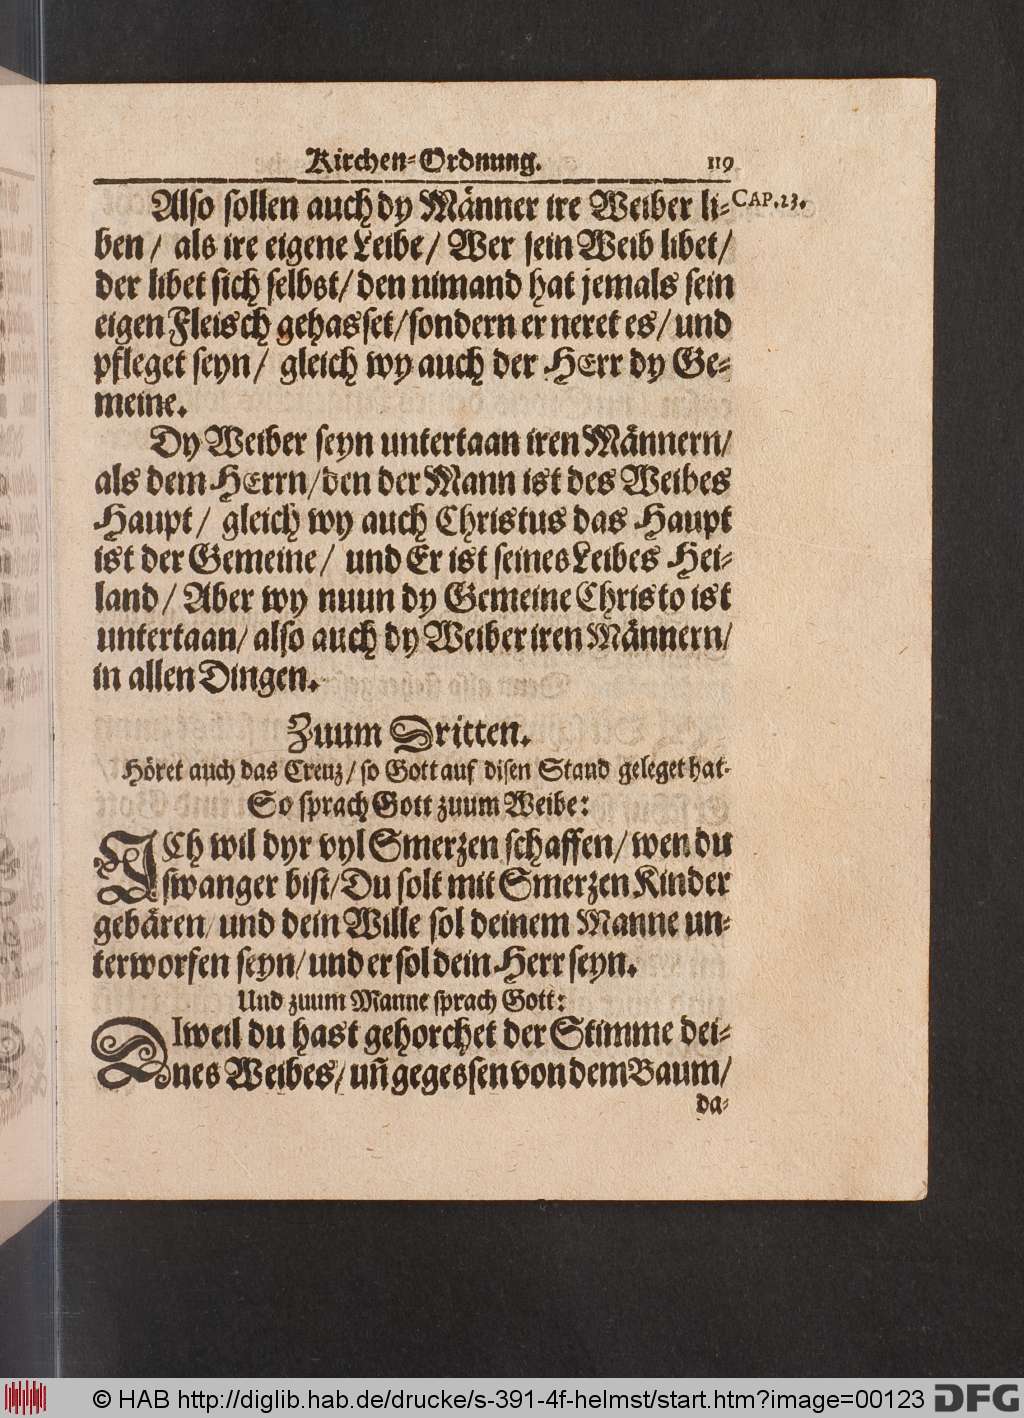 Kirchen-Ordnung. 119
Also sollen auch dy Männer ire Weiber li- CAP. 23.
ben / als ire eigene Leibe / Wer sein Weib libet /
der libet sich selbst / den nimand hat jemals sein
eigen Fleisch gehasset / sondern er neret es / und
pfleget seyn / gleich wy auch der HErr dy Ge-
meine.
Dy Weiber seyn untertaan iren Männern /
als dem HErrn / den der Mann ist des Weibes
Haupt / gleich wy auch Christus das Haupt
ist der Gemeine / und Er ist seines Leibes Hei-
land / Aber wy nuun dy Gemeine Christo ist
untertaan / also auch dy Weiber iren Männern /
in allen Dingen.
Zuum Dritten.
Höret auch das Creuz / so Gott auf disen Stand geleget hat.
So sprach Gott zuum Weibe:
ICh wil dyr vyl Smerzen schaffen / wen du
swanger bist / Du solt mit Smerzen Kinder
gebären / und dein Wille sol deinem Manne un-
terworfen seyn / und er sol dein Herr seyn.
Und zuum Manne sprach Gott:
DIweil du hast gehorchet der Stimme dei-
nes Weibes / uñ gegessen von dem Baum /
da-
© HAB http://diglib.hab.de/drucke/s-391-4f-helmst/start.htm?image=00123 DFG